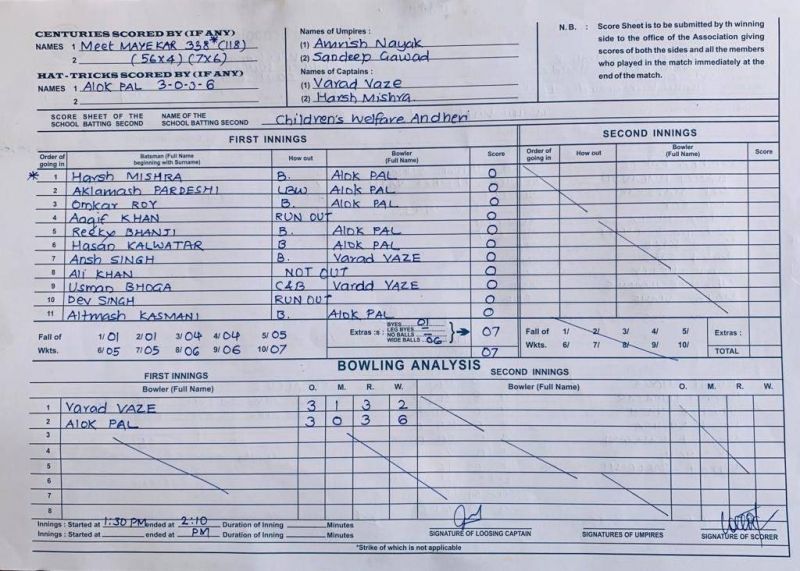 CENTURIES SCORED BY (IF ANY)
NAMES 1 Meet MAYEKAR 338* (118)
2 (56x4) (7x6)
HAT-TRICKS SCORED BY (IF ANY)
NAMES 1 Alok PAL 3-0-3-6
2
Names of Umpires :
(1) Amrish Nayak
(2) Sandeep Gawad
Names of Captains :
(1) Varad Vaze
(2) Harsh Mishra
N.B. : Score Sheet is to be submitted by th winning
side to the office of the Association giving
scores of both the sides and all the members
who played in the match immediately at the
end of the match.
SCORE SHEET OF THE SCHOOL BATTING SECOND NAME OF THE SCHOOL BATTING SECOND Children's Welfare Andheri
FIRST INNINGS
Order of going in Batsman (Full Name beginning with Surname) How out Bowler (Full Name) Score
* 1 Harsh MISHRA B. Alok PAL 0
2 Aklamash PARDESHI LBW Alok PAL 0
3 Omkar ROY B. Alok PAL 0
4 Aaqif KHAN RUN OUT 0
5 Recky BHANJI B. Alok PAL 0
6 Hasan KALWATAR B Alok PAL 0
7 Ansh SINGH B. Varad VAZE 0
8 Ali KHAN NOT OUT 0
9 Usman BHOGA C&B Varad VAZE 0
10 Dev SINGH RUN OUT 0
11 Altmash KASMANI B. Alok PAL 0
Fall of 1/01 2/01 3/04 4/04 5/05
Wkts. 6/05 7/05 8/06 9/06 10/07
Extras :
BYES 01
LEG BYES
NO BALLS
WIDE BALLS 06
07
07
SECOND INNINGS
Order of going in How out Bowler (Full Name) Score
Fall of 1/ 2/ 3/ 4/ 5/ Extras :
Wkts. 6/ 7/ 8/ 9/ 10/ TOTAL
BOWLING ANALYSIS
FIRST INNINGS
Bowler (Full Name) O. M. R. W.
1 Varad VAZE 3 1 3 2
2 Alok PAL 3 0 3 6
3
4
5
6
7
8
SECOND INNINGS
Bowler (Full Name) O. M. R. W.
Innings : Started at 1:30 PM ended at 2:10 PM Duration of Inning Minutes
Innings : Started at ended at Duration of Inning Minutes
SIGNATURE OF LOOSING CAPTAIN
SIGNATURES OF UMPIRES
SIGNATURE OF SCORER
*Strike of which is not applicable